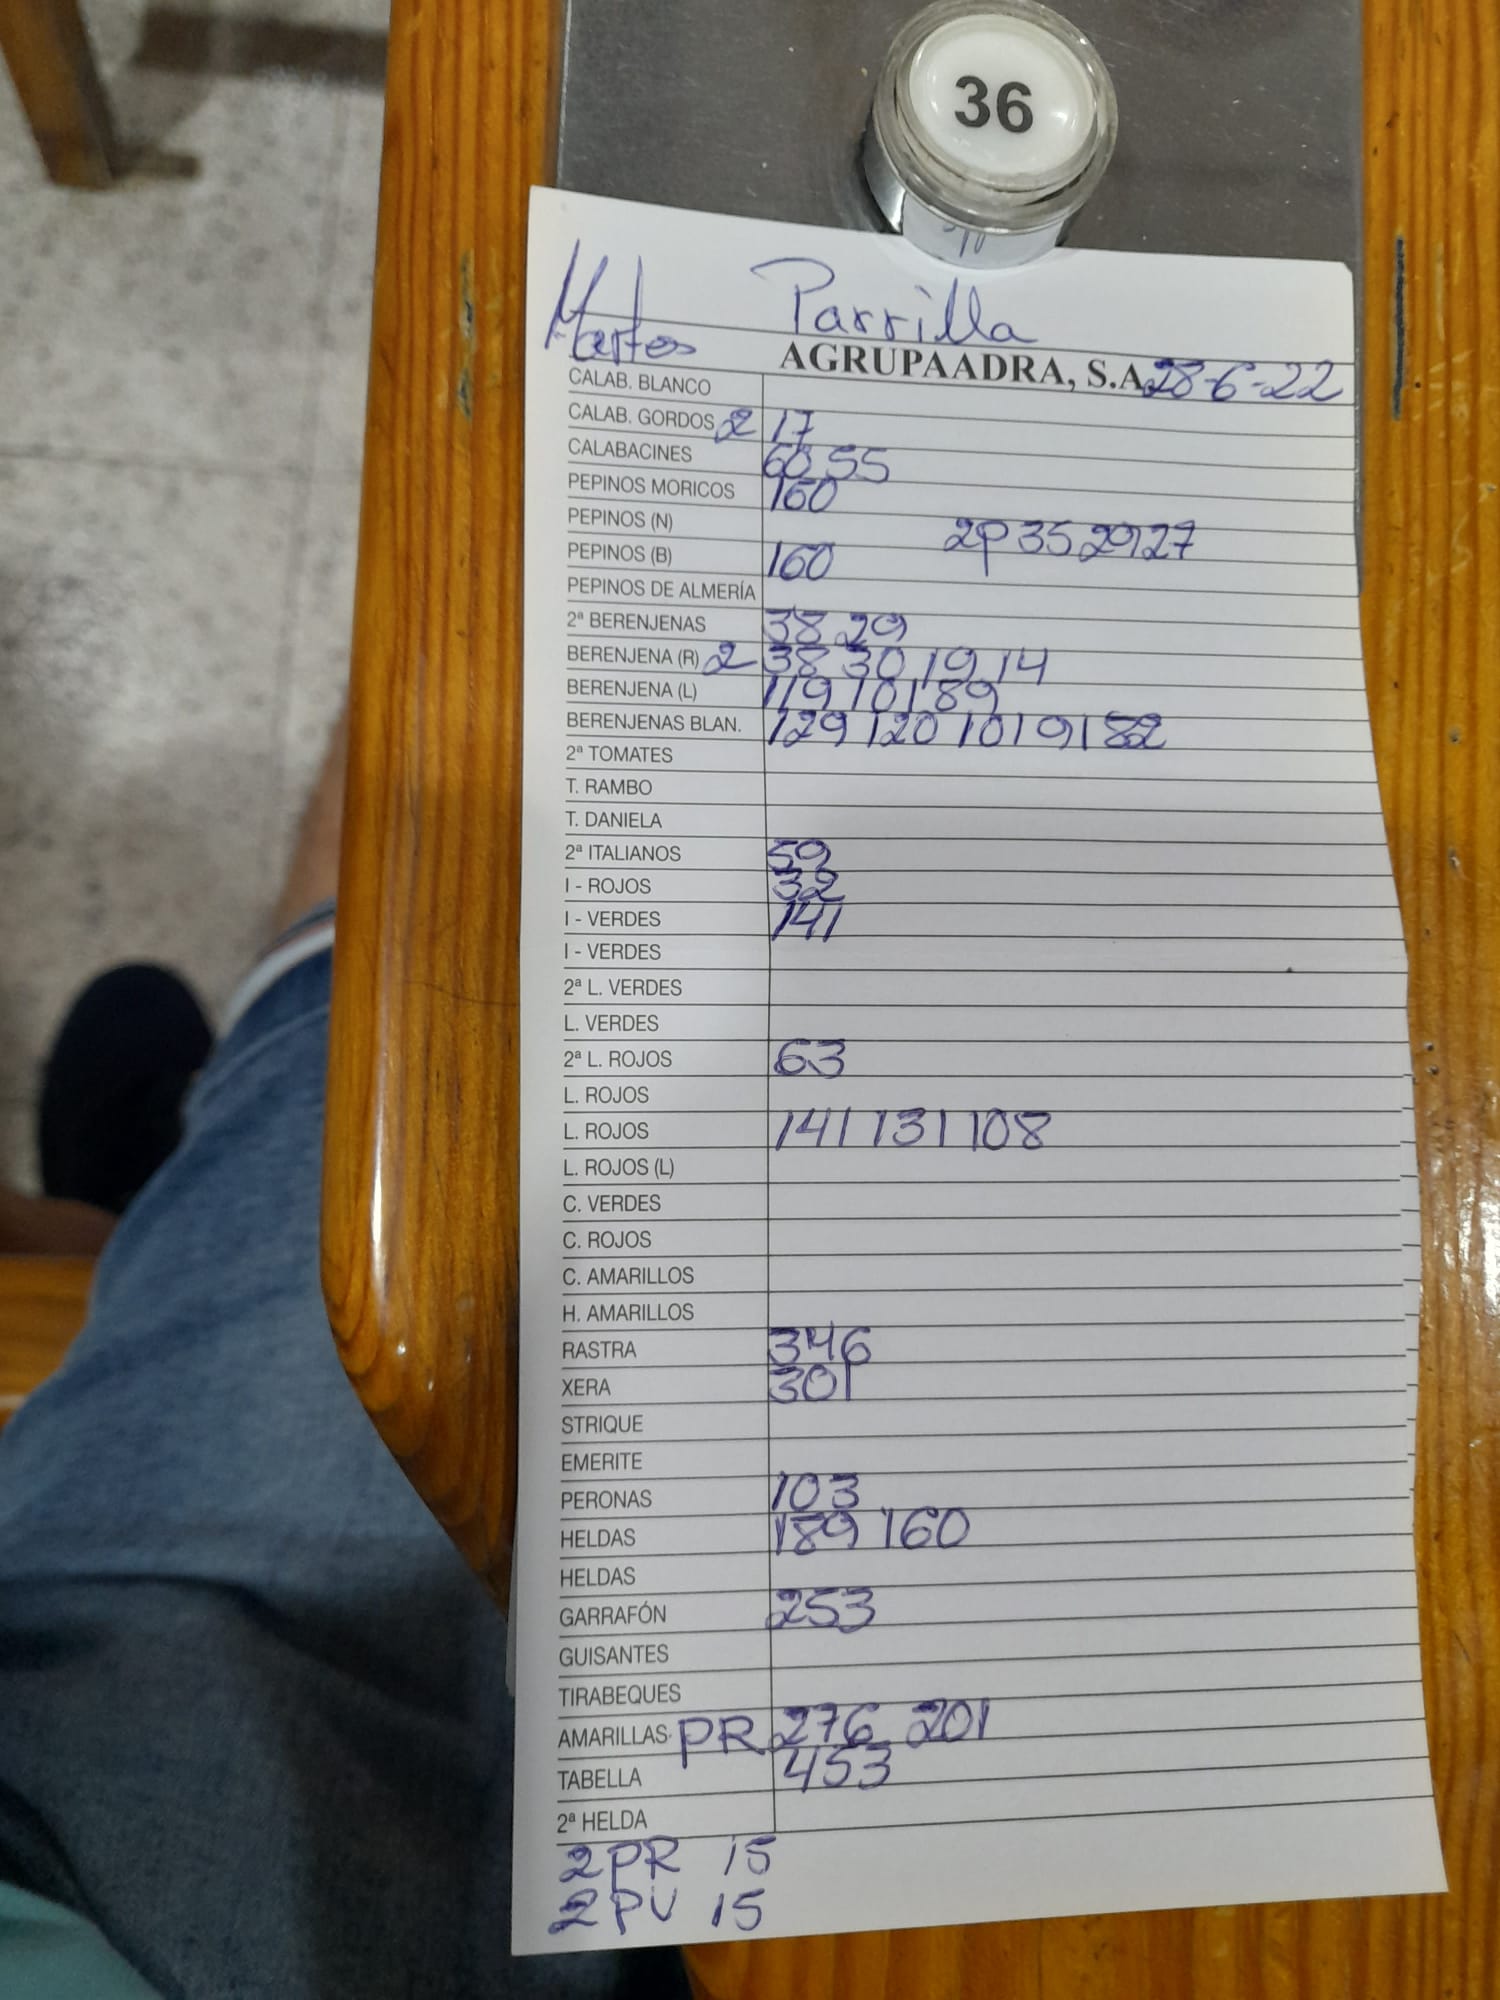 36
Martos Parrilla
AGRUPAADRA, S.A. 28-6-22
CALAB. BLANCO
CALAB. GORDOS 2 17
CALABACINES 60 55
PEPINOS MORICOS 160
PEPINOS (N) 2P 35 29 27
PEPINOS (B) 160
PEPINOS DE ALMERÍA
2ª BERENJENAS 38 29
BERENJENA (R) 2 38 30 19 14
BERENJENA (L) 119 101 89
BERENJENAS BLAN. 129 120 101 91 82
2ª TOMATES
T. RAMBO
T. DANIELA
2ª ITALIANOS 59
I - ROJOS 32
I - VERDES 141
I - VERDES
2ª L. VERDES
L. VERDES
2ª L. ROJOS 63
L. ROJOS
L. ROJOS 141 131 108
L. ROJOS (L)
C. VERDES
C. ROJOS
C. AMARILLOS
H. AMARILLOS
RASTRA 346
XERA 301
STRIQUE
EMERITE
PERONAS 103
HELDAS 189 160
HELDAS
GARRAFÓN 253
GUISANTES
TIRABEQUES
AMARILLAS PR 276 201
TABELLA 453
2ª HELDA
2PR 15
2PV 15